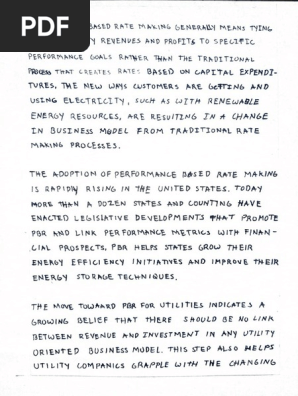 PDF
BASED RATE MAKING GENERALLY MEANS TYING
REVENUES AND PROFITS TO SPECIFIC
PERFORMANCE GOALS RATHER THAN THE TRADITIONAL
PROCESS THAT CREATES RATES BASED ON CAPITAL EXPENDI-
TURES, THE NEW WAYS CUSTOMERS ARE GETTING AND
USING ELECTRICITY, SUCH AS WITH RENEWABLE
ENERGY RESOURCES, ARE RESULTING IN A CHANGE
IN BUSINESS MODEL FROM TRADITIONAL RATE
MAKING PROCESSES.
THE ADOPTION OF PERFORMANCE BASED RATE MAKING
IS RAPIDLY RISING IN THE UNITED STATES. TODAY
MORE THAN A DOZEN STATES AND COUNTING HAVE
ENACTED LEGISLATIVE DEVELOPMENTS THAT PROMOTE
PBR AND LINK PERFORMANCE METRICS WITH FINAN-
CIAL PROSPECTS, PBR HELPS STATES GROW THEIR
ENERGY EFFICIENCY INITIATIVES AND IMPROVE THEIR
ENERGY STORAGE TECHNIQUES.
THE MOVE TOWARD PBR FOR UTILITIES INDICATES A
GROWING BELIEF THAT THERE SHOULD BE NO LINK
BETWEEN REVENUE AND INVESTMENT IN ANY UTILITY
ORIENTED BUSINESS MODEL. THIS STEP ALSO HELPS
UTILITY COMPANIES GRAPPLE WITH THE CHANGING